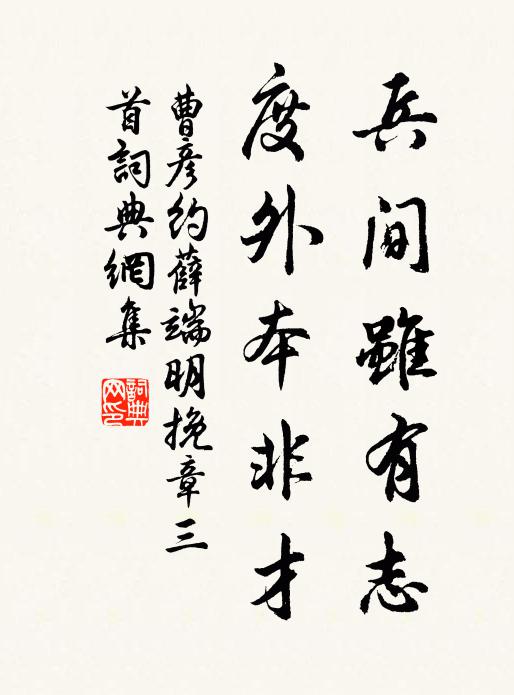 兵間雖有志
度外本非才
曹彥約薛端明挽章三
首詞典網集
詞典
网印